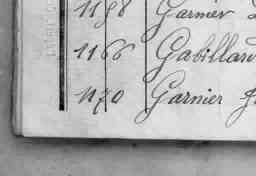 1158 Garnier
1166 Gabillard
1170 Garnier